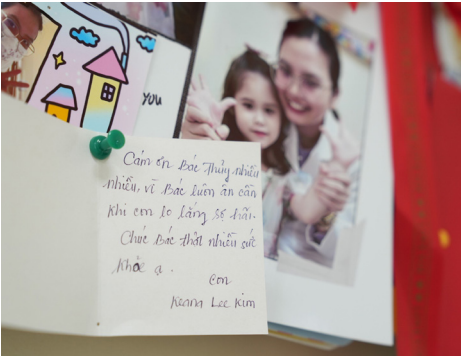 you
Cám ơn Bác Thủy nhiều
nhiều, vì Bác luôn ân cần
khi con lo lắng sợ hãi.
Chúc Bác thật nhiều sức
khỏe ạ.
Con
Keana Lee Kim